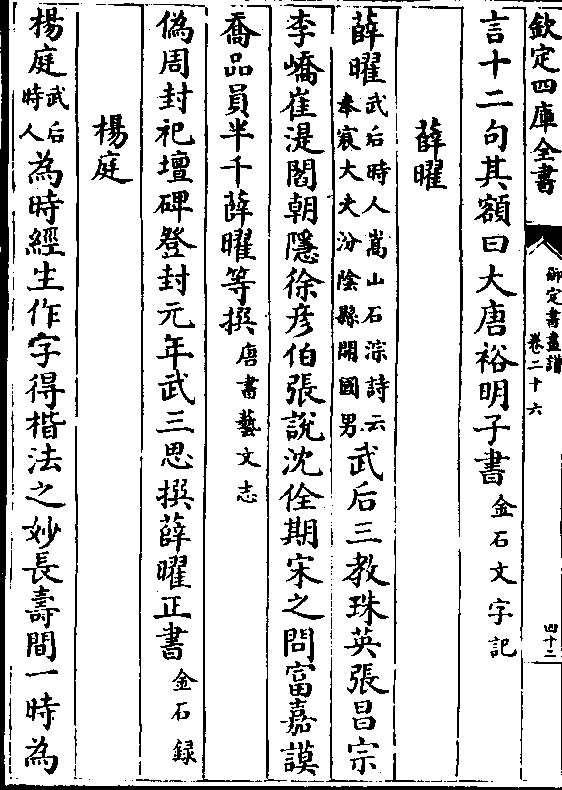 欽定四庫全書
御定書畫譜
卷二十六
四十二
言十二句其額曰大唐裕明子書金石文字記
薛曜
薛曜武后時人嵩山石淙詩云奉宸大夫汾陰縣開國男武后三教珠英張昌宗
李嶠崔湜閻朝隱徐彥伯張說沈佺期宋之問富嘉謨
喬品員半千薛曜等撰唐書藝文志
偽周封祀壇碑登封元年武三思撰薛曜正書金石録
楊庭
楊庭武后時人為時經生作字得楷法之妙長壽間一時為